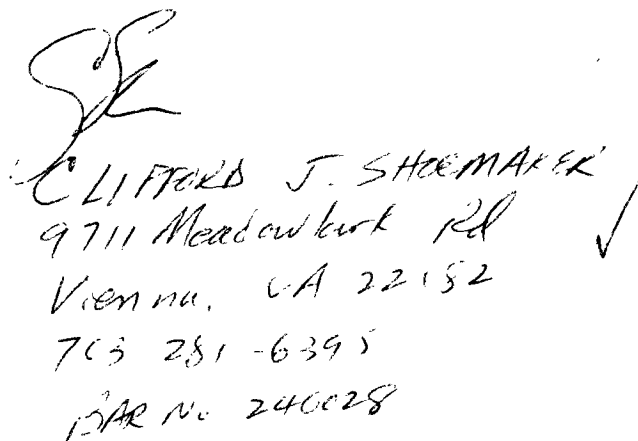 CLIFFORD J. SHOEMAKER
9711 Meadowlark Rd
Vienna, VA 22182
703 281-6395
BAR No 246028